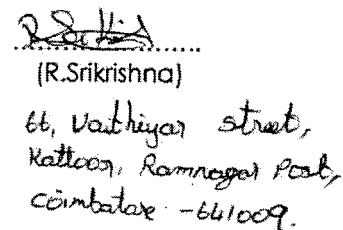 (R.Srikrishna)
66, Vaithiyar street,
Kattoor, Ramnagar Post,
Coimbatore - 641009.